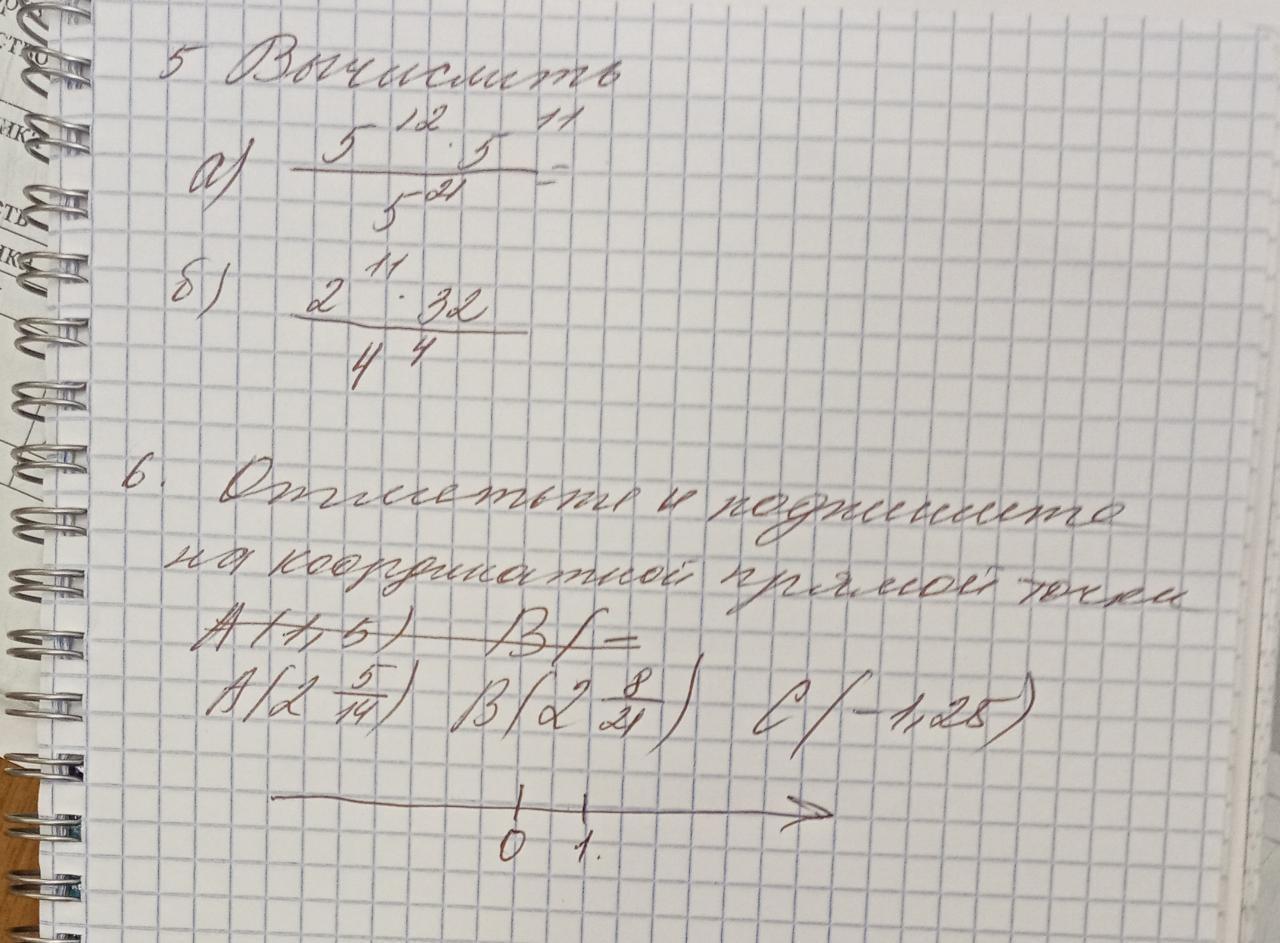 5 Вычислить
а) \frac{5^{12} \cdot 5^{11}}{5^{21}} =
б) \frac{2^{11} \cdot 32}{4^{4}}
6. Отметьте и подпишите
на координатной прямой точки
A(1,5) B( =
A(2 \frac{5}{14}) B(2 \frac{8}{21}) C(-1,25)
0 1.